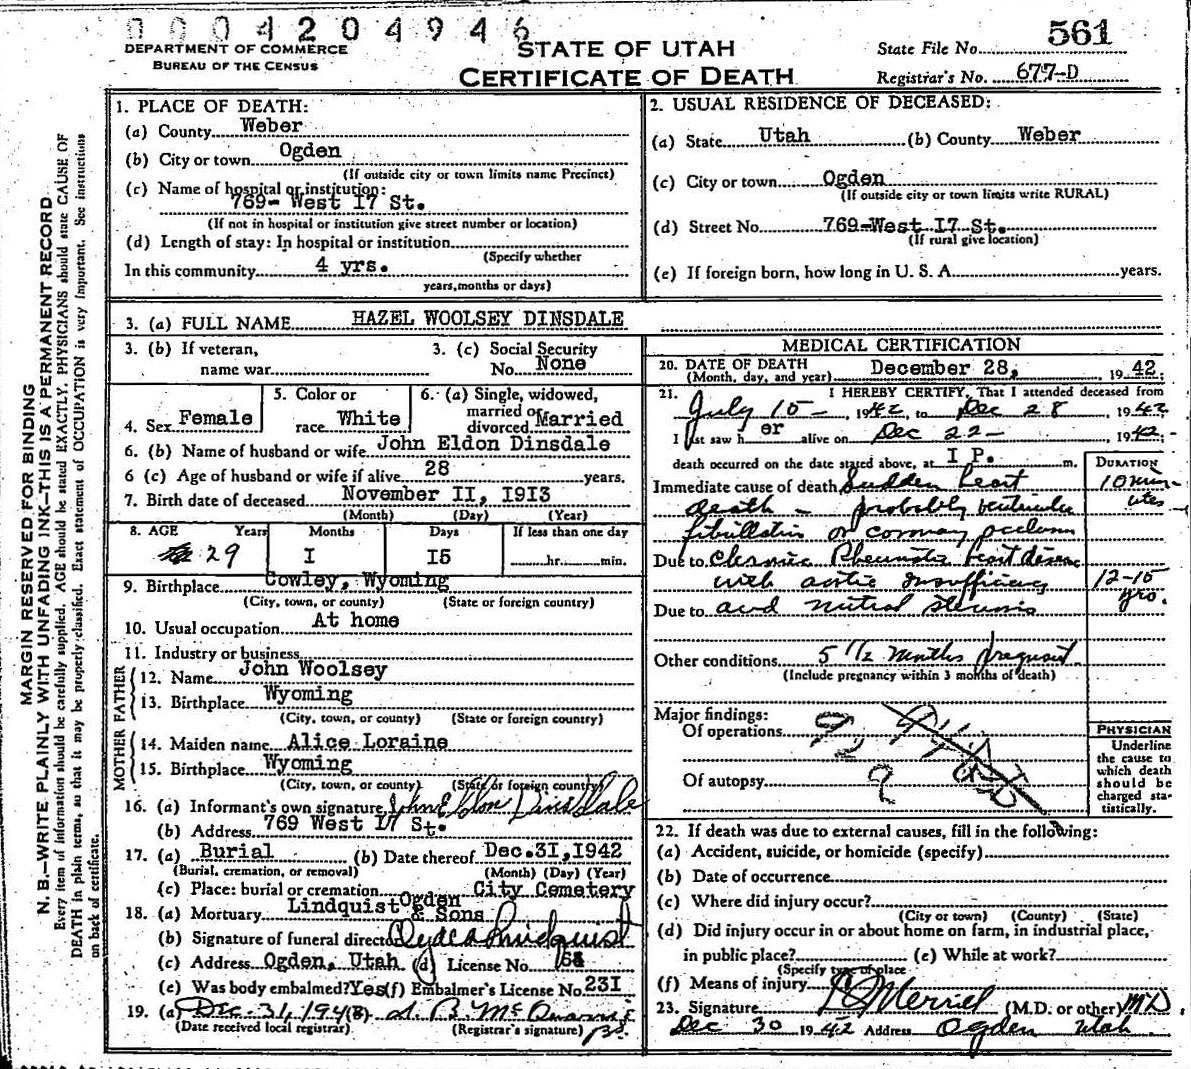 0004204946
DEPARTMENT OF COMMERCE
BUREAU OF THE CENSUS
STATE OF UTAH
CERTIFICATE OF DEATH
State File No. 561
Registrar's No. 677-D
MARGIN RESERVED FOR BINDING
N. B.—WRITE PLAINLY WITH UNFADING INK—THIS IS A PERMANENT RECORD
Every item of information should be carefully supplied. AGE should be stated EXACTLY. PHYSICIANS should state CAUSE OF
DEATH in plain terms, so that it may be properly classified. Exact statement of OCCUPATION is very important. See instructions
on back of certificate.
1. PLACE OF DEATH:
(a) County Weber
(b) City or town Ogden
(If outside city or town limits name Precinct)
(c) Name of hospital or institution:
769- West I7 St.
(If not in hospital or institution give street number or location)
(d) Length of stay: In hospital or institution
(Specify whether
In this community 4 yrs.
years, months or days)
2. USUAL RESIDENCE OF DECEASED:
(a) State Utah (b) County Weber
(c) City or town Ogden
(If outside city or town limits write RURAL)
(d) Street No. 769-West I7 St.
(If rural give location)
(e) If foreign born, how long in U. S. A. years.
3. (a) FULL NAME HAZEL WOOLSEY DINSDALE
3. (b) If veteran, name war
3. (c) Social Security No. None
4. Sex Female
5. Color or race White
6. (a) Single, widowed, married or divorced Married
6. (b) Name of husband or wife John Eldon Dinsdale
6 (c) Age of husband or wife if alive 28 years.
7. Birth date of deceased November II, I9I3
(Month) (Day) (Year)
8. AGE Years Months Days If less than one day
29 I I5 hr. min.
9. Birthplace Cowley, Wyoming
(City, town, or county) (State or foreign country)
10. Usual occupation At home
11. Industry or business
FATHER
12. Name John Woolsey
13. Birthplace Wyoming
(City, town, or county) (State or foreign country)
MOTHER
14. Maiden name Alice Loraine
15. Birthplace Wyoming
(City, town, or county) (State or foreign country)
16. (a) Informant's own signature John Eldon Dinsdale
(b) Address 769 West I7 St.
17. (a) Burial (b) Date thereof Dec.3I,I942
(Burial, cremation, or removal) (Month) (Day) (Year)
(c) Place: burial or cremation Ogden City Cemetery
18. (a) Mortuary Lindquist & Sons
(b) Signature of funeral director Clyde Lindquist
(c) Address Ogden, Utah (d) License No.
(e) Was body embalmed? Yes (f) Embalmer's License No. 23I
19. (a) Dec. 31, 194
(Date received local registrar) (Registrar's signature)
MEDICAL CERTIFICATION
20. DATE OF DEATH December 28, 1942
(Month, day, and year)
21. I HEREBY CERTIFY, That I attended deceased from
July 15- , 1942, to Dec 28, 1942
I last saw her alive on Dec 22- , 1942.
death occurred on the date stated above, at I P. m.
DURATION
Immediate cause of death Sudden heart 10 min-
death - probably ventricular utes
fibrillation or coronary occlusion
Due to chronic Rheumatic heart disease
with aortic insufficiency 12-15
Due to and mitral stenosis yrs.
Other conditions 5 1/2 months pregnant
(Include pregnancy within 3 months of death)
Major findings:
Of operations
Of autopsy
PHYSICIAN
Underline
the cause to
which death
should be
charged sta-
tistically.
22. If death was due to external causes, fill in the following:
(a) Accident, suicide, or homicide (specify)
(b) Date of occurrence
(c) Where did injury occur?
(City or town) (County) (State)
(d) Did injury occur in or about home on farm, in industrial place,
in public place? (e) While at work?
(Specify type of place
(f) Means of injury
23. Signature Merrill (M.D. or other) MD.
Dec 30 1942 Address Ogden Utah